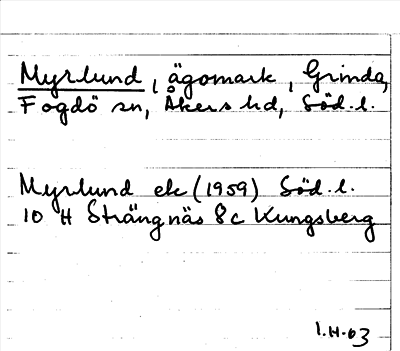 Myrlund, ägomark, Grinda,
Fogdö sn, Åkers hd, Söd.l.
Myrlund ek (1959) Söd.l.
10 H Strängnäs 8c Kungsberg
1.H.03